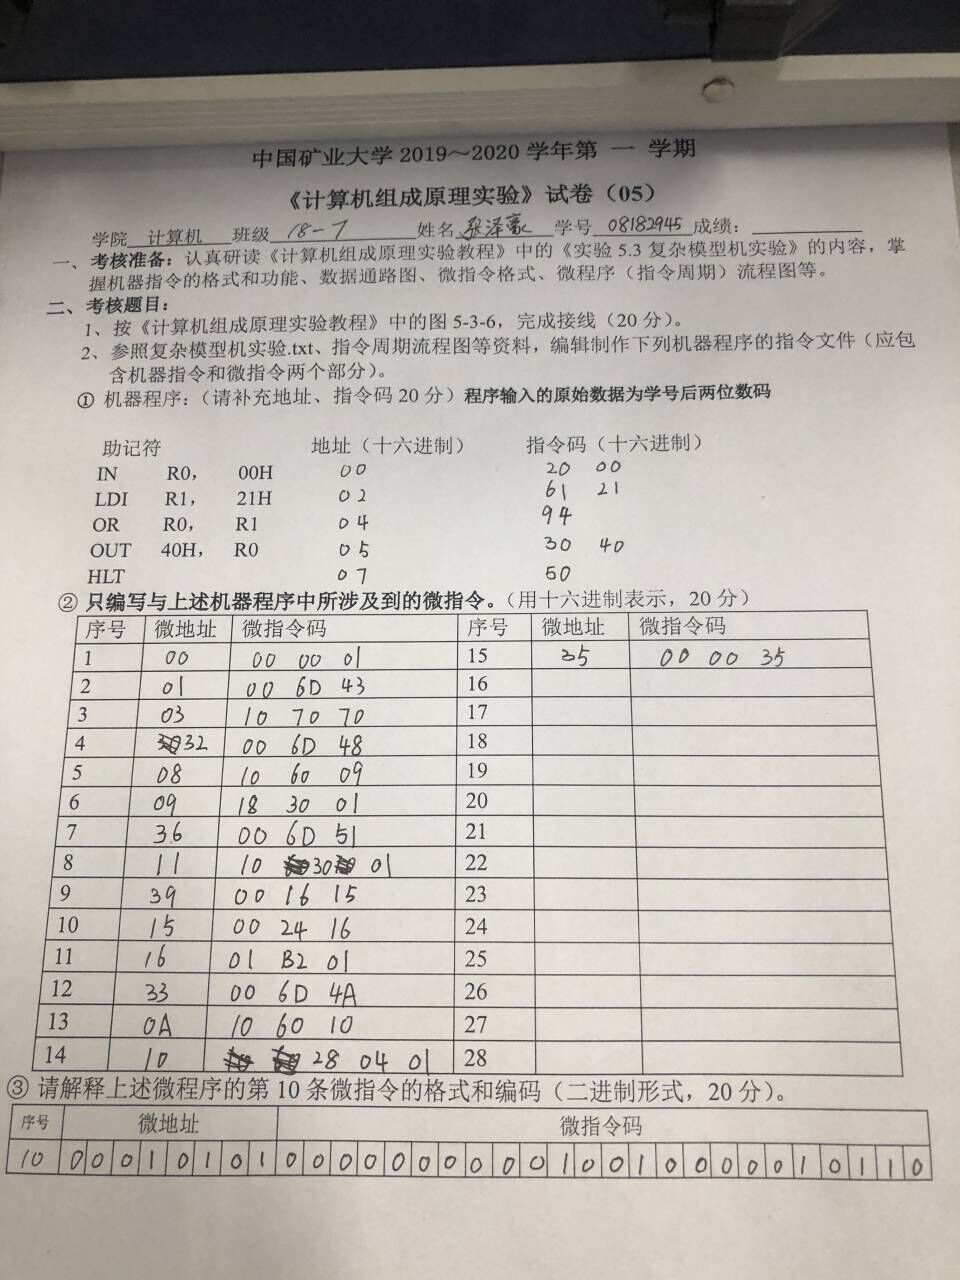 中国矿业大学 2019～2020 学年第 一 学期
《计算机组成原理实验》试卷（05）
学院 计算机 班级 18-7 姓名 张泽豪 学号 08182945 成绩：
一、考核准备：认真研读《计算机组成原理实验教程》中的《实验 5.3 复杂模型机实验》的内容，掌
握机器指令的格式和功能、数据通路图、微指令格式、微程序（指令周期）流程图等。
二、考核题目：
1、按《计算机组成原理实验教程》中的图 5-3-6，完成接线（20 分）。
2、参照复杂模型机实验.txt、指令周期流程图等资料，编辑制作下列机器程序的指令文件（应包
含机器指令和微指令两个部分）。
① 机器程序：（请补充地址、指令码 20 分）程序输入的原始数据为学号后两位数码
助记符 地址（十六进制） 指令码（十六进制）
IN R0， 00H 00 20 00
LDI R1， 21H 02 61 21
OR R0， R1 04 94
OUT 40H， R0 05 30 40
HLT 07 50
② 只编写与上述机器程序中所涉及到的微指令。（用十六进制表示，20 分）
序号 微地址 微指令码 序号 微地址 微指令码
1 00 00 00 01 15 35 00 00 35
2 01 00 6D 43 16
3 03 10 70 70 17
4 32 00 6D 48 18
5 08 10 60 09 19
6 09 18 30 01 20
7 36 00 6D 51 21
8 11 10 30 01 22
9 39 00 16 15 23
10 15 00 24 16 24
11 16 01 B2 01 25
12 33 00 6D 4A 26
13 0A 10 60 10 27
14 10 28 04 01 28
③ 请解释上述微程序的第 10 条微指令的格式和编码（二进制形式，20 分）。
序号 微地址 微指令码
10 0 0 0 1 0 1 0 1 0 0 0 0 0 0 0 0 0 0 1 0 0 1 0 0 0 0 0 1 0 1 1 0